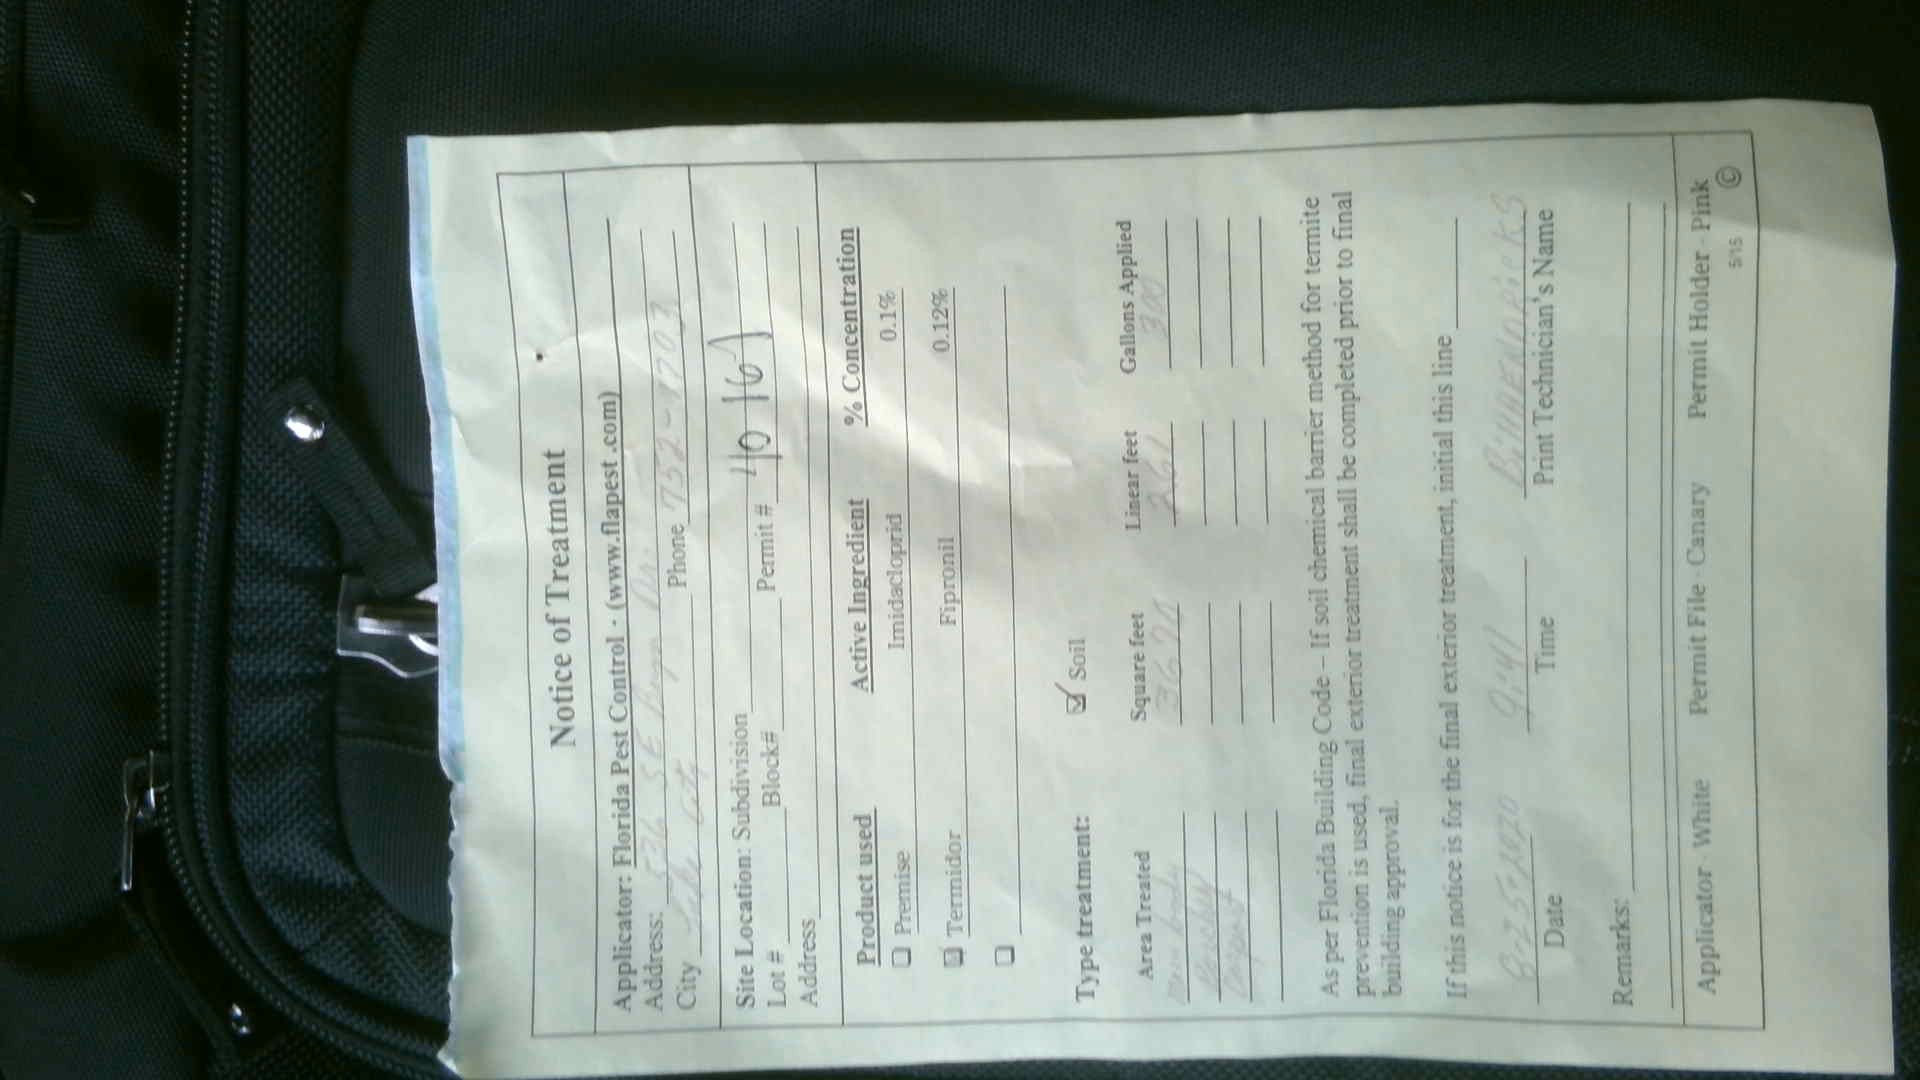 Notice of Treatment
Applicator: Florida Pest Control - (www.flapest.com)
Address: 536 SE Baya Dr.
City Lake City Phone 752-1703
Site Location: Subdivision
Lot # Block# Permit # 40161
Address
Product used Active Ingredient % Concentration
Premise Imidacloprid 0.1%
Termidor Fipronil 0.12%
Type treatment: Soil
Area Treated Square feet Linear feet Gallons Applied
Main body 3620 261 300
Porches
Carport
As per Florida Building Code – If soil chemical barrier method for termite
prevention is used, final exterior treatment shall be completed prior to final
building approval.
If this notice is for the final exterior treatment, initial this line
8-25-2020 9:41
Date Time Print Technician's Name
Remarks:
Applicator - White Permit File - Canary Permit Holder - Pink
5/15 ©